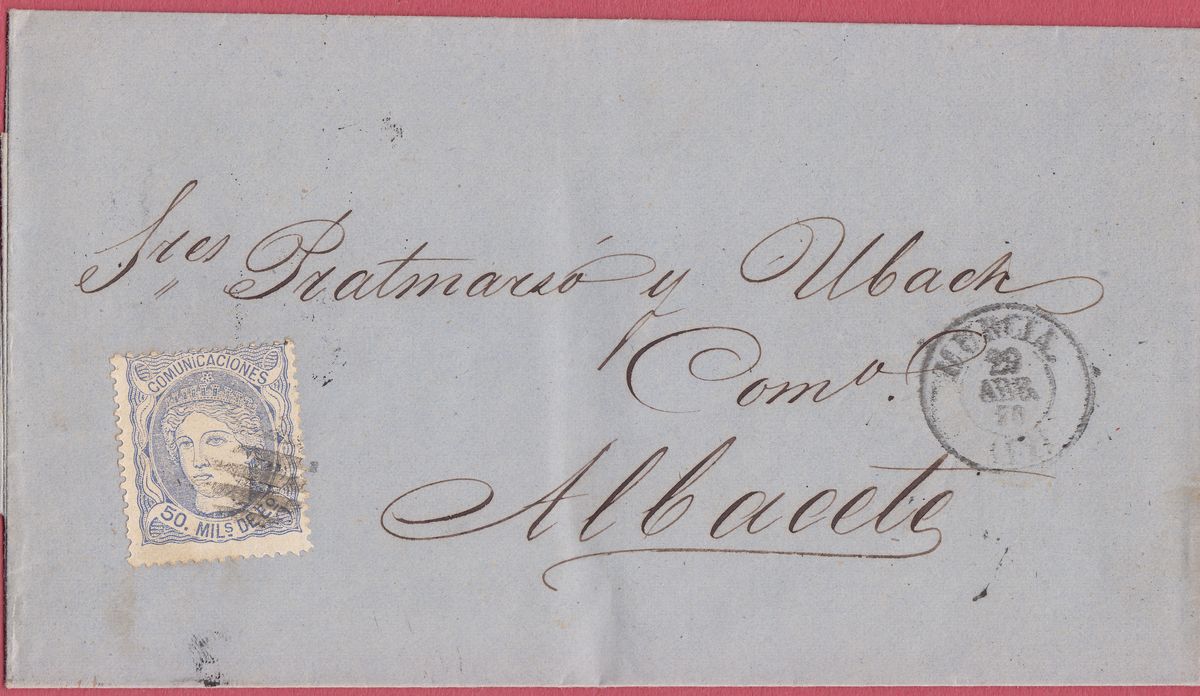 Sres Pratmarsó y Ubach
Como.
Albacete
COMUNICACIONES
50. MILS DE Eo
MURCIA.
29
ABR
70